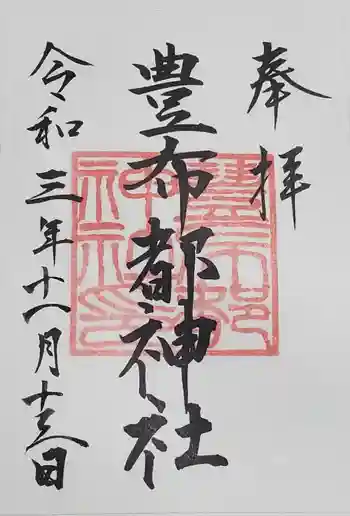 奉拝
豊布都神社
令和三年十一月十三日